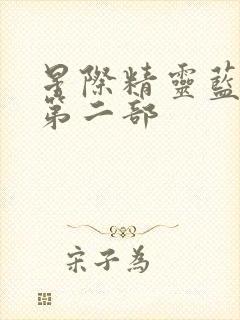 星際精靈藍
第二部
宋子為